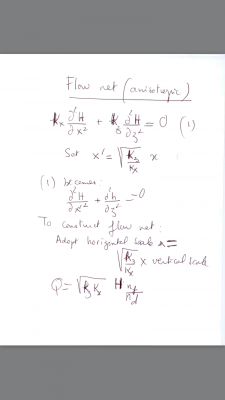 Flow net (anisotropic)
Kx ∂²H/∂x² + Kz ∂²H/∂z² = 0 (1)
Set x' = √(Kz/Kx) x
(1) becomes:
∂²H/∂x² + ∂²h/∂z² = 0
To construct flow net:
Adopt horizontal scale =
√(Kz/Kx) x vertical scale
Q = √(Kz Kx) H nf/nd